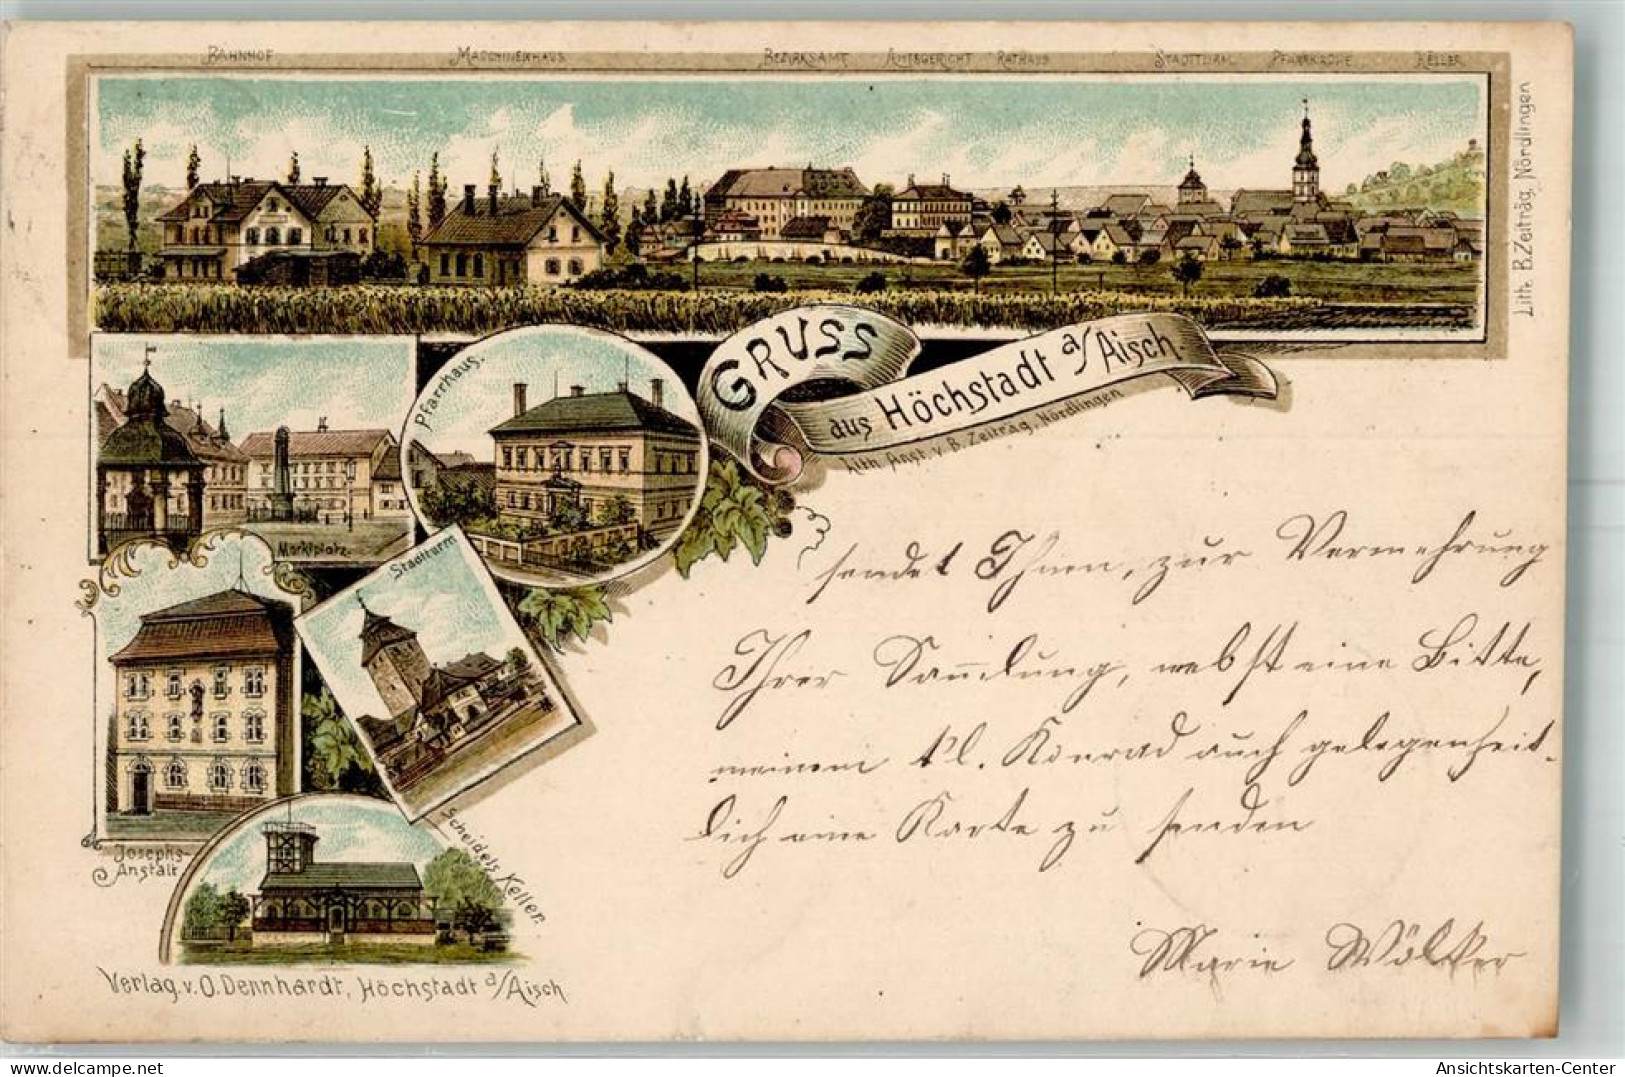 BAHNHOF MASCHINENHAUS BEZIRKSAMT AMTSGERICHT RATHAUS STADTTURM PFARRKIRCHE KELLER
Lith. B. Zeiträg, Nördlingen
GRUSS
aus Höchstadt a/Aisch
Lith. Anst. v. B. Zeiträg, Nördlingen
Pfarrhaus.
Marktplatz.
Stadtturm
Josephs-
Anstalt
Scheidels Keller.
Verlag v. O. Dennhardt, Höchstadt a/Aisch
sendet Ihnen, zur Vermehrung
Ihrer Sammlung, nebst eine Bitte,
meinem Konrad auch gelegenheit-
lich eine Karte zu senden
Marie Wölker
Ansichtskarten-Center